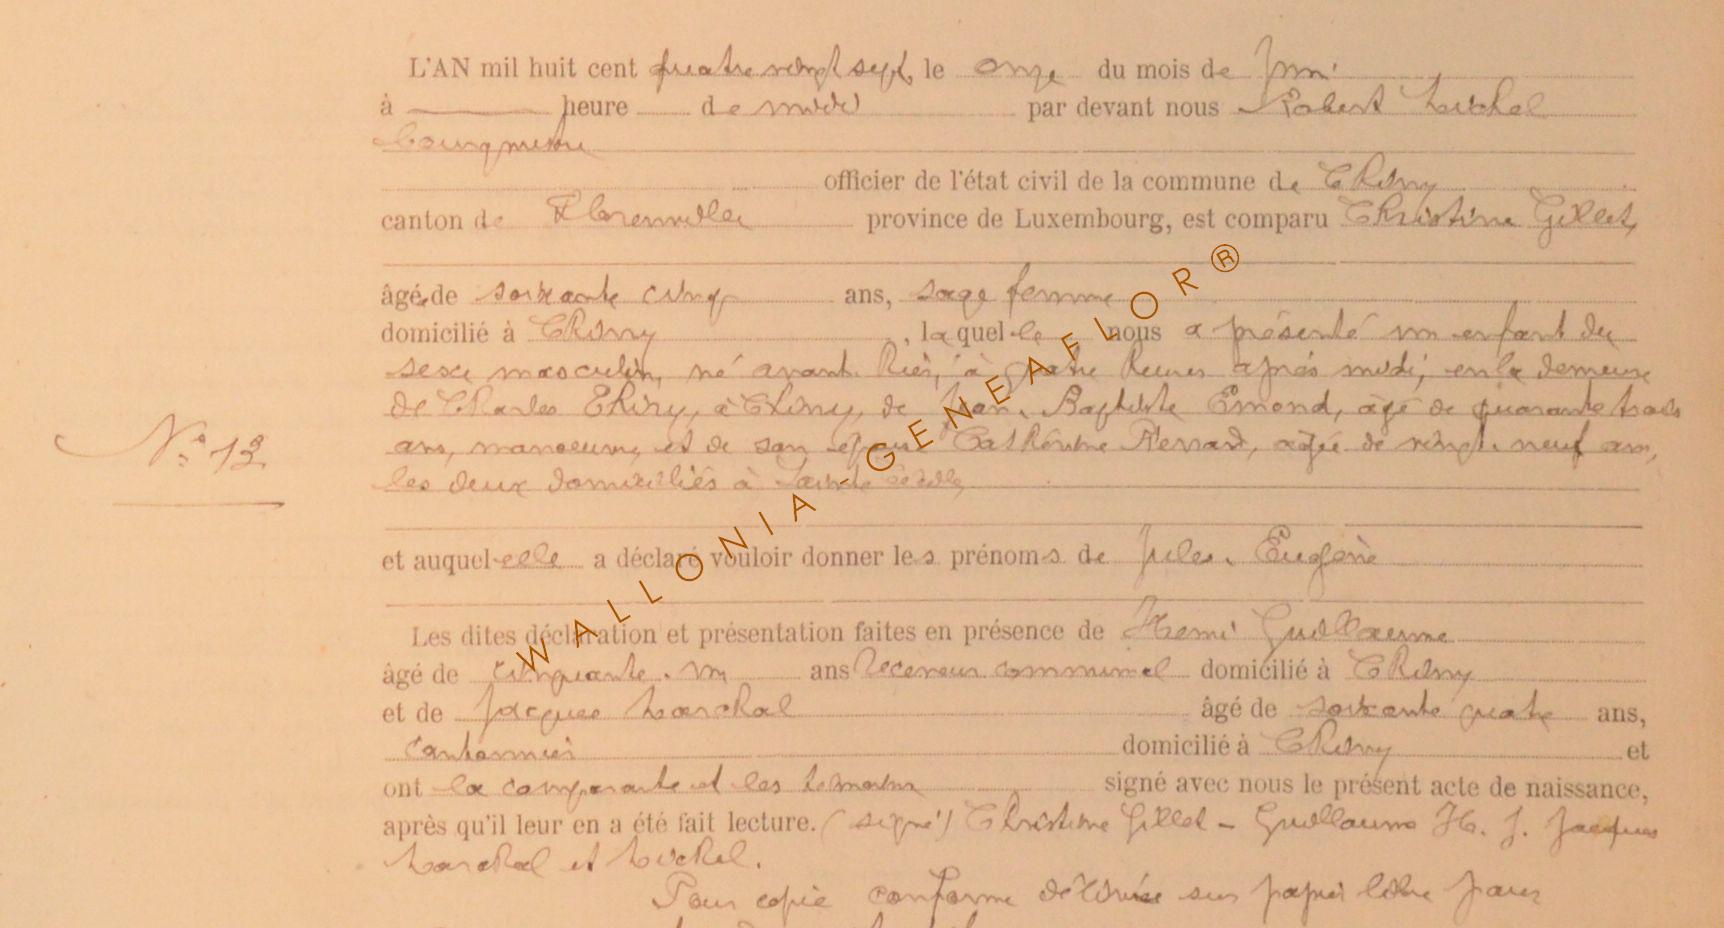 L'AN mil huit cent quatre vingt sept, le onze du mois de Juin
à heure de midi par devant nous Robert Michel
bourgmestre
officier de l'état civil de la commune de Chiny
canton de Florenville province de Luxembourg, est comparu Christine Gillet,
âgée de soixante cinq ans, sage femme
domicilié à Chiny, laquelle nous a présenté un enfant du
sexe masculin, né avant hier, à quatre heures après midi, en la demeure
de Charles Thiry, à Chiny, de Jean-Baptiste Emond, âgé de quarante trois
ans, manoeuvre, et de son épouse Catherine, âgée de vingt-neuf ans,
les deux domiciliés à Sainte Cécile,
N° 13
et auquel elle a déclaré vouloir donner les prénoms de Jules-Eugène
Les dites déclaration et présentation faites en présence de Henri Guillaume
âgé de cinquante-un ans receveur communal domicilié à Chiny
et de Jacques Marchal âgé de soixante quatre ans,
cantonnier domicilié à Chiny et
ont la comparante et les témoins signé avec nous le présent acte de naissance,
après qu'il leur en a été fait lecture. (signé) Christine Gillet - Guillaume H. J. Jacques
Marchal et Michel.
Pour copie conforme délivrée sur papier libre pour
WALLONIA-GENEAFLOR®